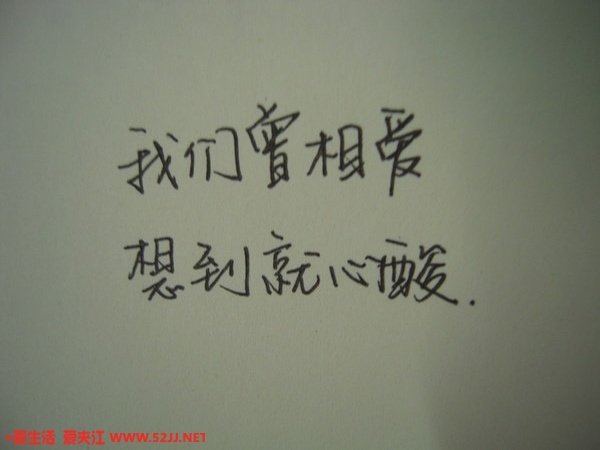 我们曾相爱
想到就心酸.
爱生活 爱夹江 WWW.52JJ.NET